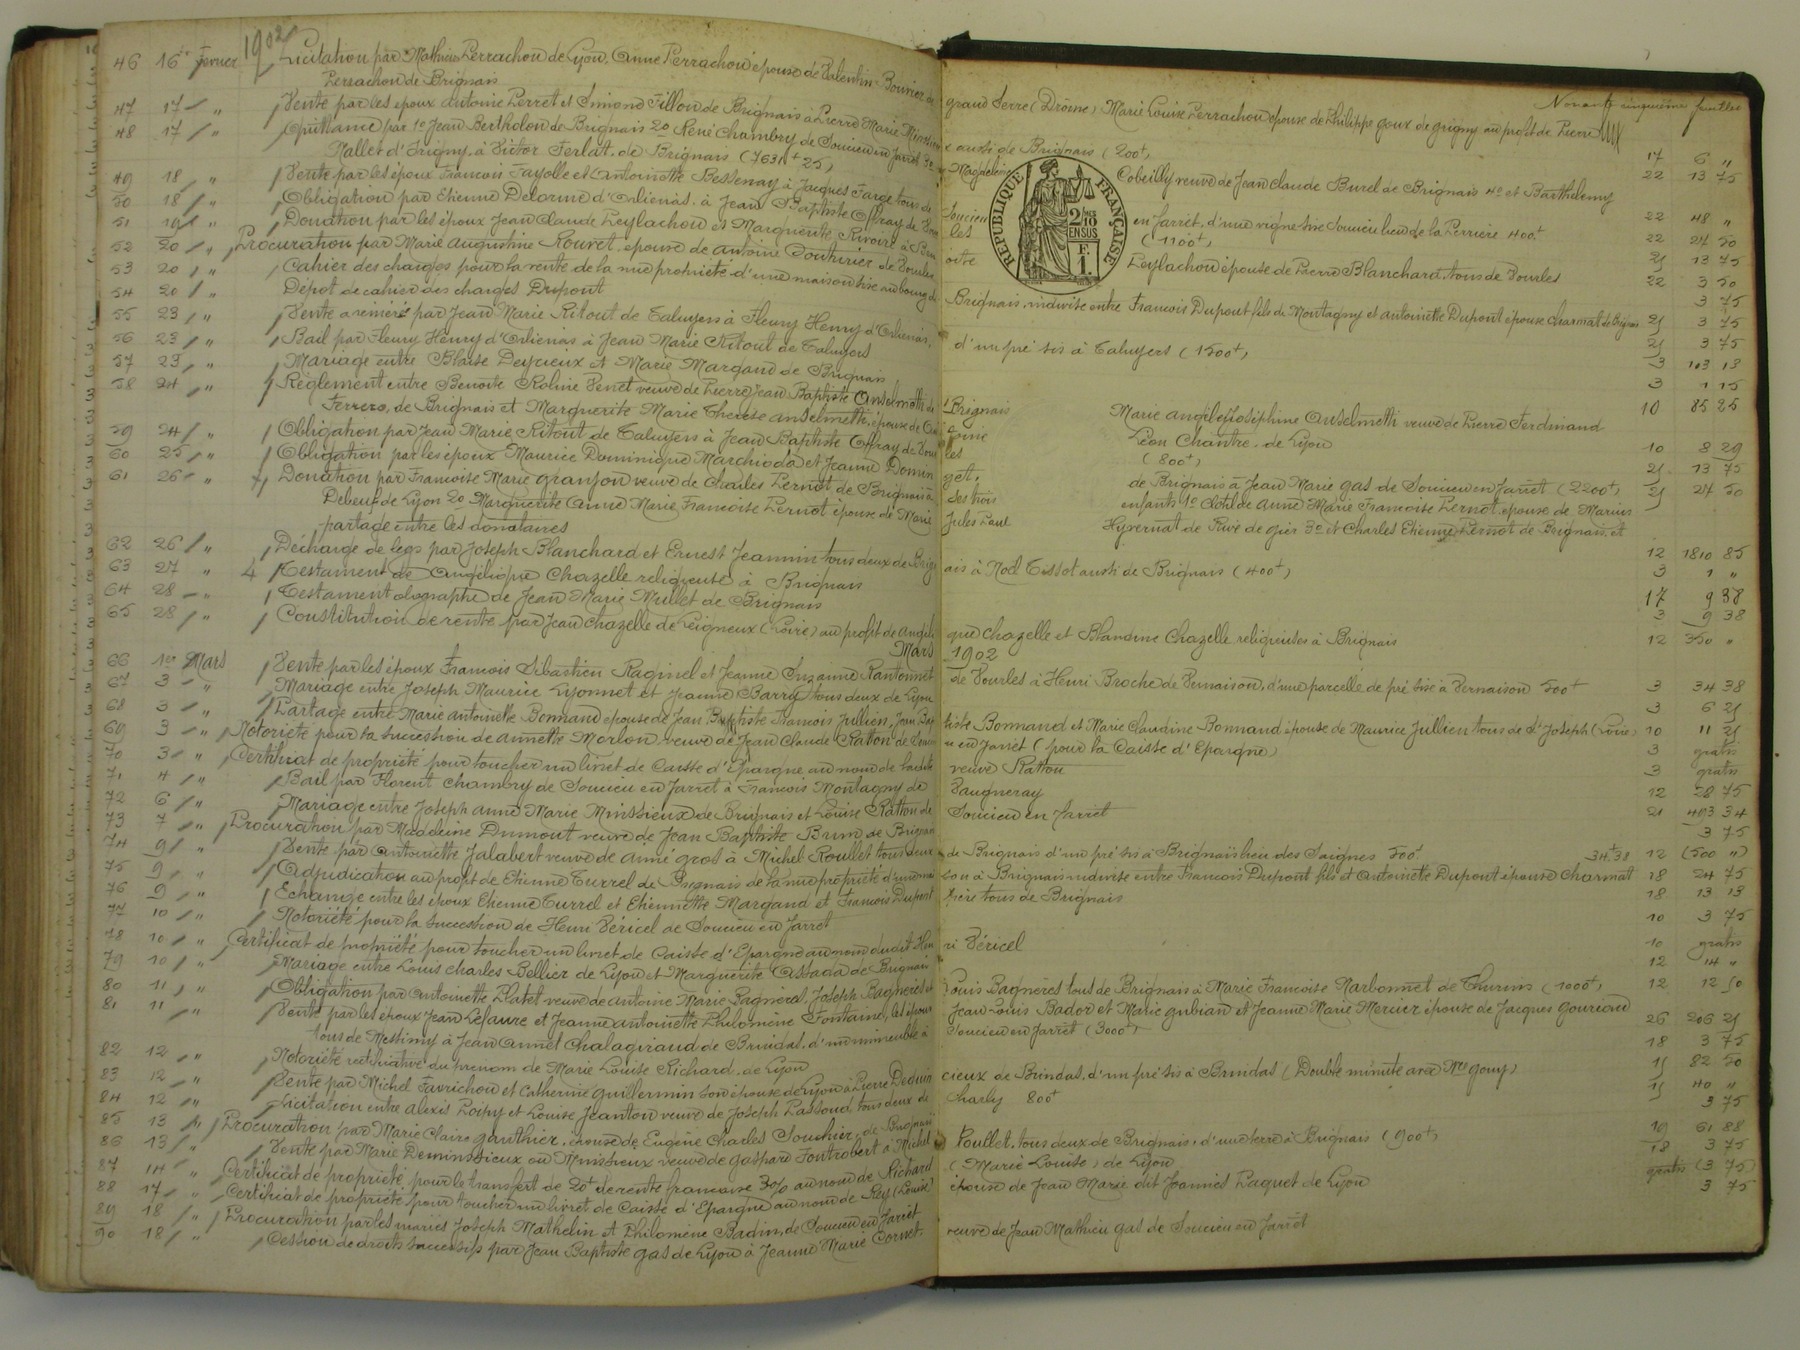 1902
Novante cinquième feuillet
46 16 Fevrier Licitation par Mathieu Perrachon de Lyon, Anne Perrachon épouse de Valentin Bouvier de grand Serre (Drôme) Marie Louise Perrachon épouse de Philippe Goux de grigny au profit de Pierre
Perrachon de Brignais
47 17 " Vente par les époux Antoine Perret et Simone Fillon de Brignais à Pierre Marie aussi de Brignais (200f) 17 6 "
48 17 " Quittance par 1o Jean Bertholon de Brignais 2o René Chambry de Soucieu en Jarret 3o Magdeleine Cobeilly veuve de Jean Claude Burel de Brignais 4o et Barthélemy 22 13 75
Mallet d'Irigny, à Victor Ferlat, de Brignais
49 18 " Vente par les époux Francois Fayolle et Antoinette Bessenay à Jacques Farge tous de Soucieu en Jarret, d'une vigne sise Soucieu lieu de la Perrière 400f 22 48 "
50 18 " Obligation par Etienne Delorme d'Orliénas, à Jean Baptiste Offray de Vourles (1100f) 22 24 50
51 19 " Donation par les époux Jean Claude Peylachon et Marguerite Rivoire à Peylachon épouse de Pierre Blanchard, tous de Vourles 21 13 75
52 20 " Procuration par Marie Augustine Rouvet, épouse de Antoine Couturier de Vourles 22 3 50
53 20 " Cahier des charges pour la vente de la nue propriété d'une maison sise au bourg de Brignais, indivise entre Francois Dupont fils de Montagny et Antoinette Dupont épouse Charmat de Brignais 3 75
54 20 " Dépot de cahier des charges Dupont 21 3 75
55 23 " Vente à réméré par Jean Marie Ritout de Taluyers à Fleury Henry d'Orliénas, d'un pré sis à Taluyers (1500f) 21 3 75
56 23 " Bail par Fleury Henry d'Orliénas à Jean Marie Ritout de Taluyers 3 113 13
57 23 " Mariage entre Blaise Deyrieux et Marie Margand de Brignais 3 1 15
58 24 " Réglement entre Benoite Roline Venet veuve de Pierre Jean Baptiste Anselmetti de Brignais Marie Angèle Joséphine Anselmetti veuve de Pierre Ferdinand 10 85 25
Ferrero, de Brignais et Marguerite Marie Thérèse Anselmetti, épouse de Léon Chantre, de Lyon
59 24 " Obligation par Jean Marie Ritout de Taluyers à Jean Baptiste Offray de Vourles (800f) 10 8 29
60 25 " Obligation par les époux Maurice Dominique Marchioda et Jeanne Dominget, de Brignais à Jean Marie Gas de Soucieu en Jarret (2200f) 21 13 75
61 26 " Donation par Francoise Marie Granjon veuve de Charles Pernot de Brignais à ses trois enfants 1o Clotilde Anne Marie Francoise Pernot, épouse de Marius 21 24 50
Debeuf de Lyon 2o Marguerite Anne Marie Francoise Pernot épouse de Marie Jules Paul Hyvernat de Rive de gier 3o et Charles Etienne Pernot de Brignais, et
partage entre les donataires
62 26 " Décharge de legs par Joseph Blanchard et Ernest Jeannin tous deux de Brignais à Noël Tissot aussi de Brignais (400f) 12 1810 85
63 27 " Testament de Angélique Chazelle religieuse à Brignais 3 1 "
64 28 " Testament olographe de Jean Marie Mullet de Brignais 17 9 38
65 28 " Constitution de rente par Jean Chazelle de Leigneux (Loire) au profit de Angélique Chazelle et Blandine Chazelle religieuses à Brignais 3 9 38
12 350 "
Mars 1902
66 1er Mars Vente par les époux Francois Sébastien Raginel et Jeanne Suzanne Rantonnet de Vourles à Henri Broche de Vernaison, d'une parcelle de pré sise à Vernaison 500f 3 34 38
67 3 " Mariage entre Joseph Maurice Lyonnet et Jeanne Barry tous deux de Lyon 3 6 25
68 3 " Partage entre Marie Antoinette Bonnand épouse de Jean Baptiste Francois Jullien, Jean Baptiste Bonnand et Marie Claudine Bonnand épouse de Maurice Jullien tous de St Joseph (Loire) 10 11 25
69 3 " Notoriété pour la succession de Annette Morlon, veuve de Jean Claude Ratton de Soucieu en Jarret (pour la Caisse d'Epargne) 3 gratis
70 3 " Certificat de propriété pour toucher un livret de Caisse d'Epargne au nom de ladite veuve Ratton 3 gratis
71 4 " Bail par Florent Chambry de Soucieu en Jarret à Francois Montagny de Vaugneray 12 28 75
72 6 " Mariage entre Joseph Anne Marie Minssieux de Brignais et Louise Ratton de Soucieu en Jarret 21 403 34
73 7 " Procuration par Madeleine Dumont veuve de Jean Baptiste Brun de Brignais 3 75
74 9 " Vente par Antoinette Jalabert veuve de Aimé Gros à Michel Roullet tous deux de Brignais d'un pré sis à Brignais lieu des Saignes 500f 34f38 12 (500 ")
75 9 " Adjudication au profit de Etienne Turrel de Brignais de la nue propriété d'une maison à Brignais indivise entre Francois Dupont fils et Antoinette Dupont épouse Charmat 18 24 75
76 9 " Echange entre les époux Etienne Turrel et Etiennette Margand et Francois Dupont père tous de Brignais 18 13 13
77 10 " Notoriété pour la succession de Henri Véricel de Soucieu en Jarret 10 3 75
78 10 " Certificat de propriété pour toucher un livret de Caisse d'Epargne au nom dudit Henri Véricel 10 gratis
79 10 " Mariage entre Louis Charles Bellier de Lyon et Marguerite Astada de Brignais 12 14 "
80 11 " Obligation par Antoinette Platet veuve de Antoine Marie Bagnères, Joseph Bagnères et Louis Bagnères tous de Brignais à Marie Francoise Narbonnet de Thurins (1000f) 12 12 50
81 11 " Vente par les époux Jean Lefaure et Jeanne Antoinette Philomène Fontaine, les époux Jean Louis Bador et Marie Gubian et Jeanne Marie Mercier épouse de Jacques Gouriand 26 206 25
tous de Messimy à Jean Annet Chalagiraud de Brindas, d'un immeuble à Soucieu en Jarret (3000f) 18 3 75
82 12 " Notoriété rectificative du prénom de Marie Louise Richard, de Lyon
83 12 " Vente par Michel Favrichon et Catherine Guillermin son épouse de Lyon à Pierre cieux de Brindas, d'un pré sis à Brindas (Double minute avec Me Gouy) 15 82 50
84 12 " Licitation entre Alexis Poipy et Louise Jeanton veuve de Joseph Passoud, tous deux de Charly 800f 15 40 "
85 13 " Procuration par Marie Claire Gauthier, épouse de Eugène Charles Souchier, de Brignais 3 75
86 13 " Vente par Marie Deminssieux ou Minssieux veuve de Gaspard Fontrobert à Michel Poullet, tous deux de Brignais, d'une terre à Brignais (900f) 19 61 88
87 14 " Certificat de propriété pour le transfert de 20f de rente française 3% au nom de Richard (Marie Louise) de Lyon 18 3 75
88 17 " Certificat de propriété pour toucher un livret de Caisse d'Epargne au nom de Rey (Louise) épouse de Jean Marie dit Joannès Paquet de Lyon gratis (3 75)
89 18 " Procuration par les mariés Joseph Mathelin et Philomène Badin, de Soucieu en Jarret 3 75
90 18 " Cession de droits successifs par Jean Baptiste Gas de Lyon à Jeanne Marie Cornet veuve de Jean Mathieu Gas de Soucieu en Jarret
RÉPUBLIQUE FRANÇAISE
2/10 EN SUS
F. 1.